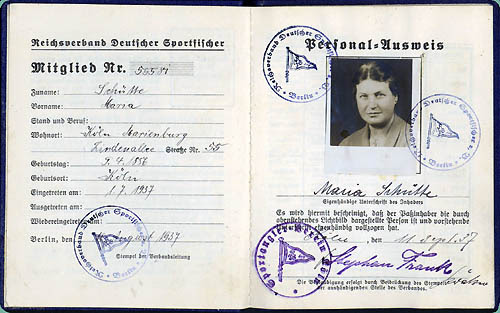 Reichsverband Deutscher Sportfischer
Mitglied Nr. 50581
Zuname: Schütte
Vorname: Maria
Stand und Beruf:
Wohnort: Köln Marienburg
Lindenallee Straße Nr. 55
Geburtstag: 9.4.1886
Geburtsort: Köln
Eingetreten am: 1.7.1937
Ausgetreten am:
Wiedereingetreten am:
Berlin, den August 1937
Stempel der Verbandsleitung
Reichsverband Deutscher Sportfischer e.V. Berlin
Personal-Ausweis
Reichsverband Deutscher Sportfischer e.V. Berlin
Reichsverband Deutscher Sportfischer e.V. Berlin
Maria Schütte
Eigenhändige Unterschrift des Inhabers
Es wird hiermit bescheinigt, daß der Paßinhaber die durch
obenstehendes Lichtbild dargestellte Person ist und vorstehende
Unterschrift eigenhändig vollzogen hat.
Köln, den 11. Sept. 37
Stephan Frank
Sportangler-Verein Köln
Die Bestätigung erfolgt durch Beidrückung des Stempels
der aushändigenden Stelle des Verbandes.